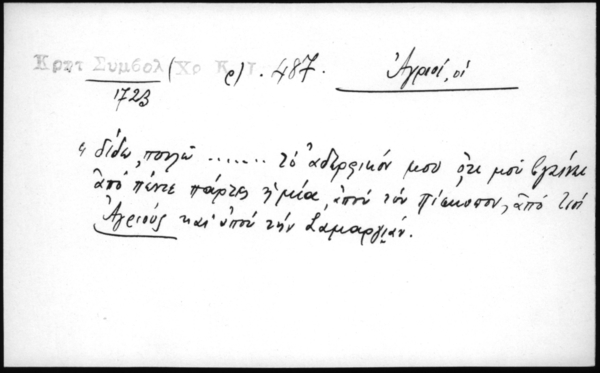 Κρητ Συμβολ (Χο ρ). 487. Ἀγριοί, οἱ
1723
"δίδω, πουλῶ ....... τὸ ἀδερφικόν μου ὅτι μοῦ ἐγκίνκε
ἀπὸ πέντε πάρτες ἡ μία, ἀπού τὸν Πίσκοπον, ἀπό τσὶ
Ἀγριούς καὶ ἀπού τὴν Σαμαργιάν.